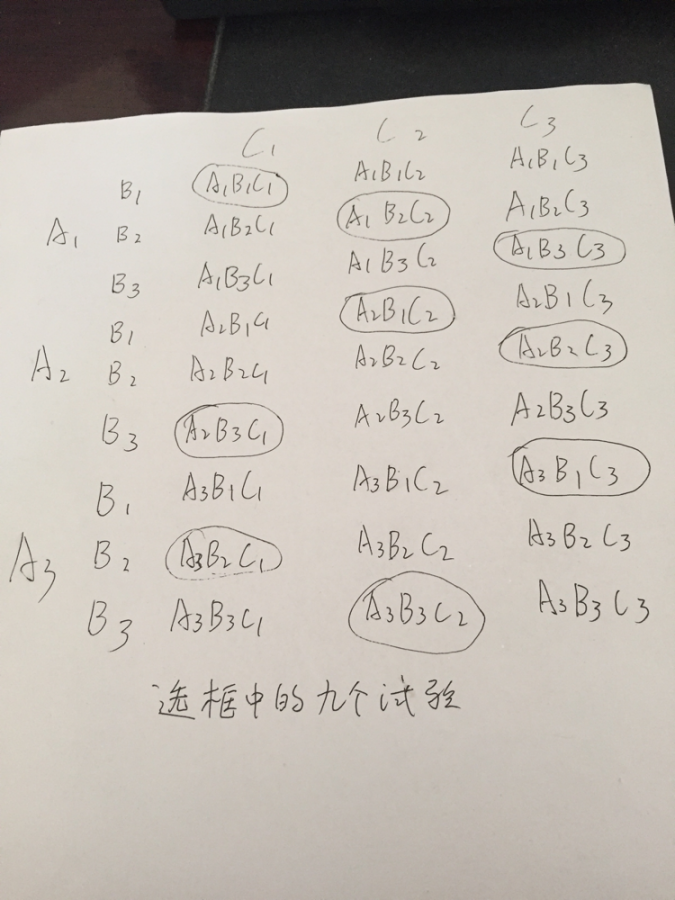 C1 C2 C3
B1 A1B1C1 A1B1C2 A1B1C3
A1 B2 A1B2C1 A1B2C2 A1B2C3
B3 A1B3C1 A1B3C2 A1B3C3
B1 A2B1C1 A2B1C2 A2B1C3
A2 B2 A2B2C1 A2B2C2 A2B2C3
B3 A2B3C1 A2B3C2 A2B3C3
B1 A3B1C1 A3B1C2 A3B1C3
A3 B2 A3B2C1 A3B2C2 A3B2C3
B3 A3B3C1 A3B3C2 A3B3C3
选框中的九个试验